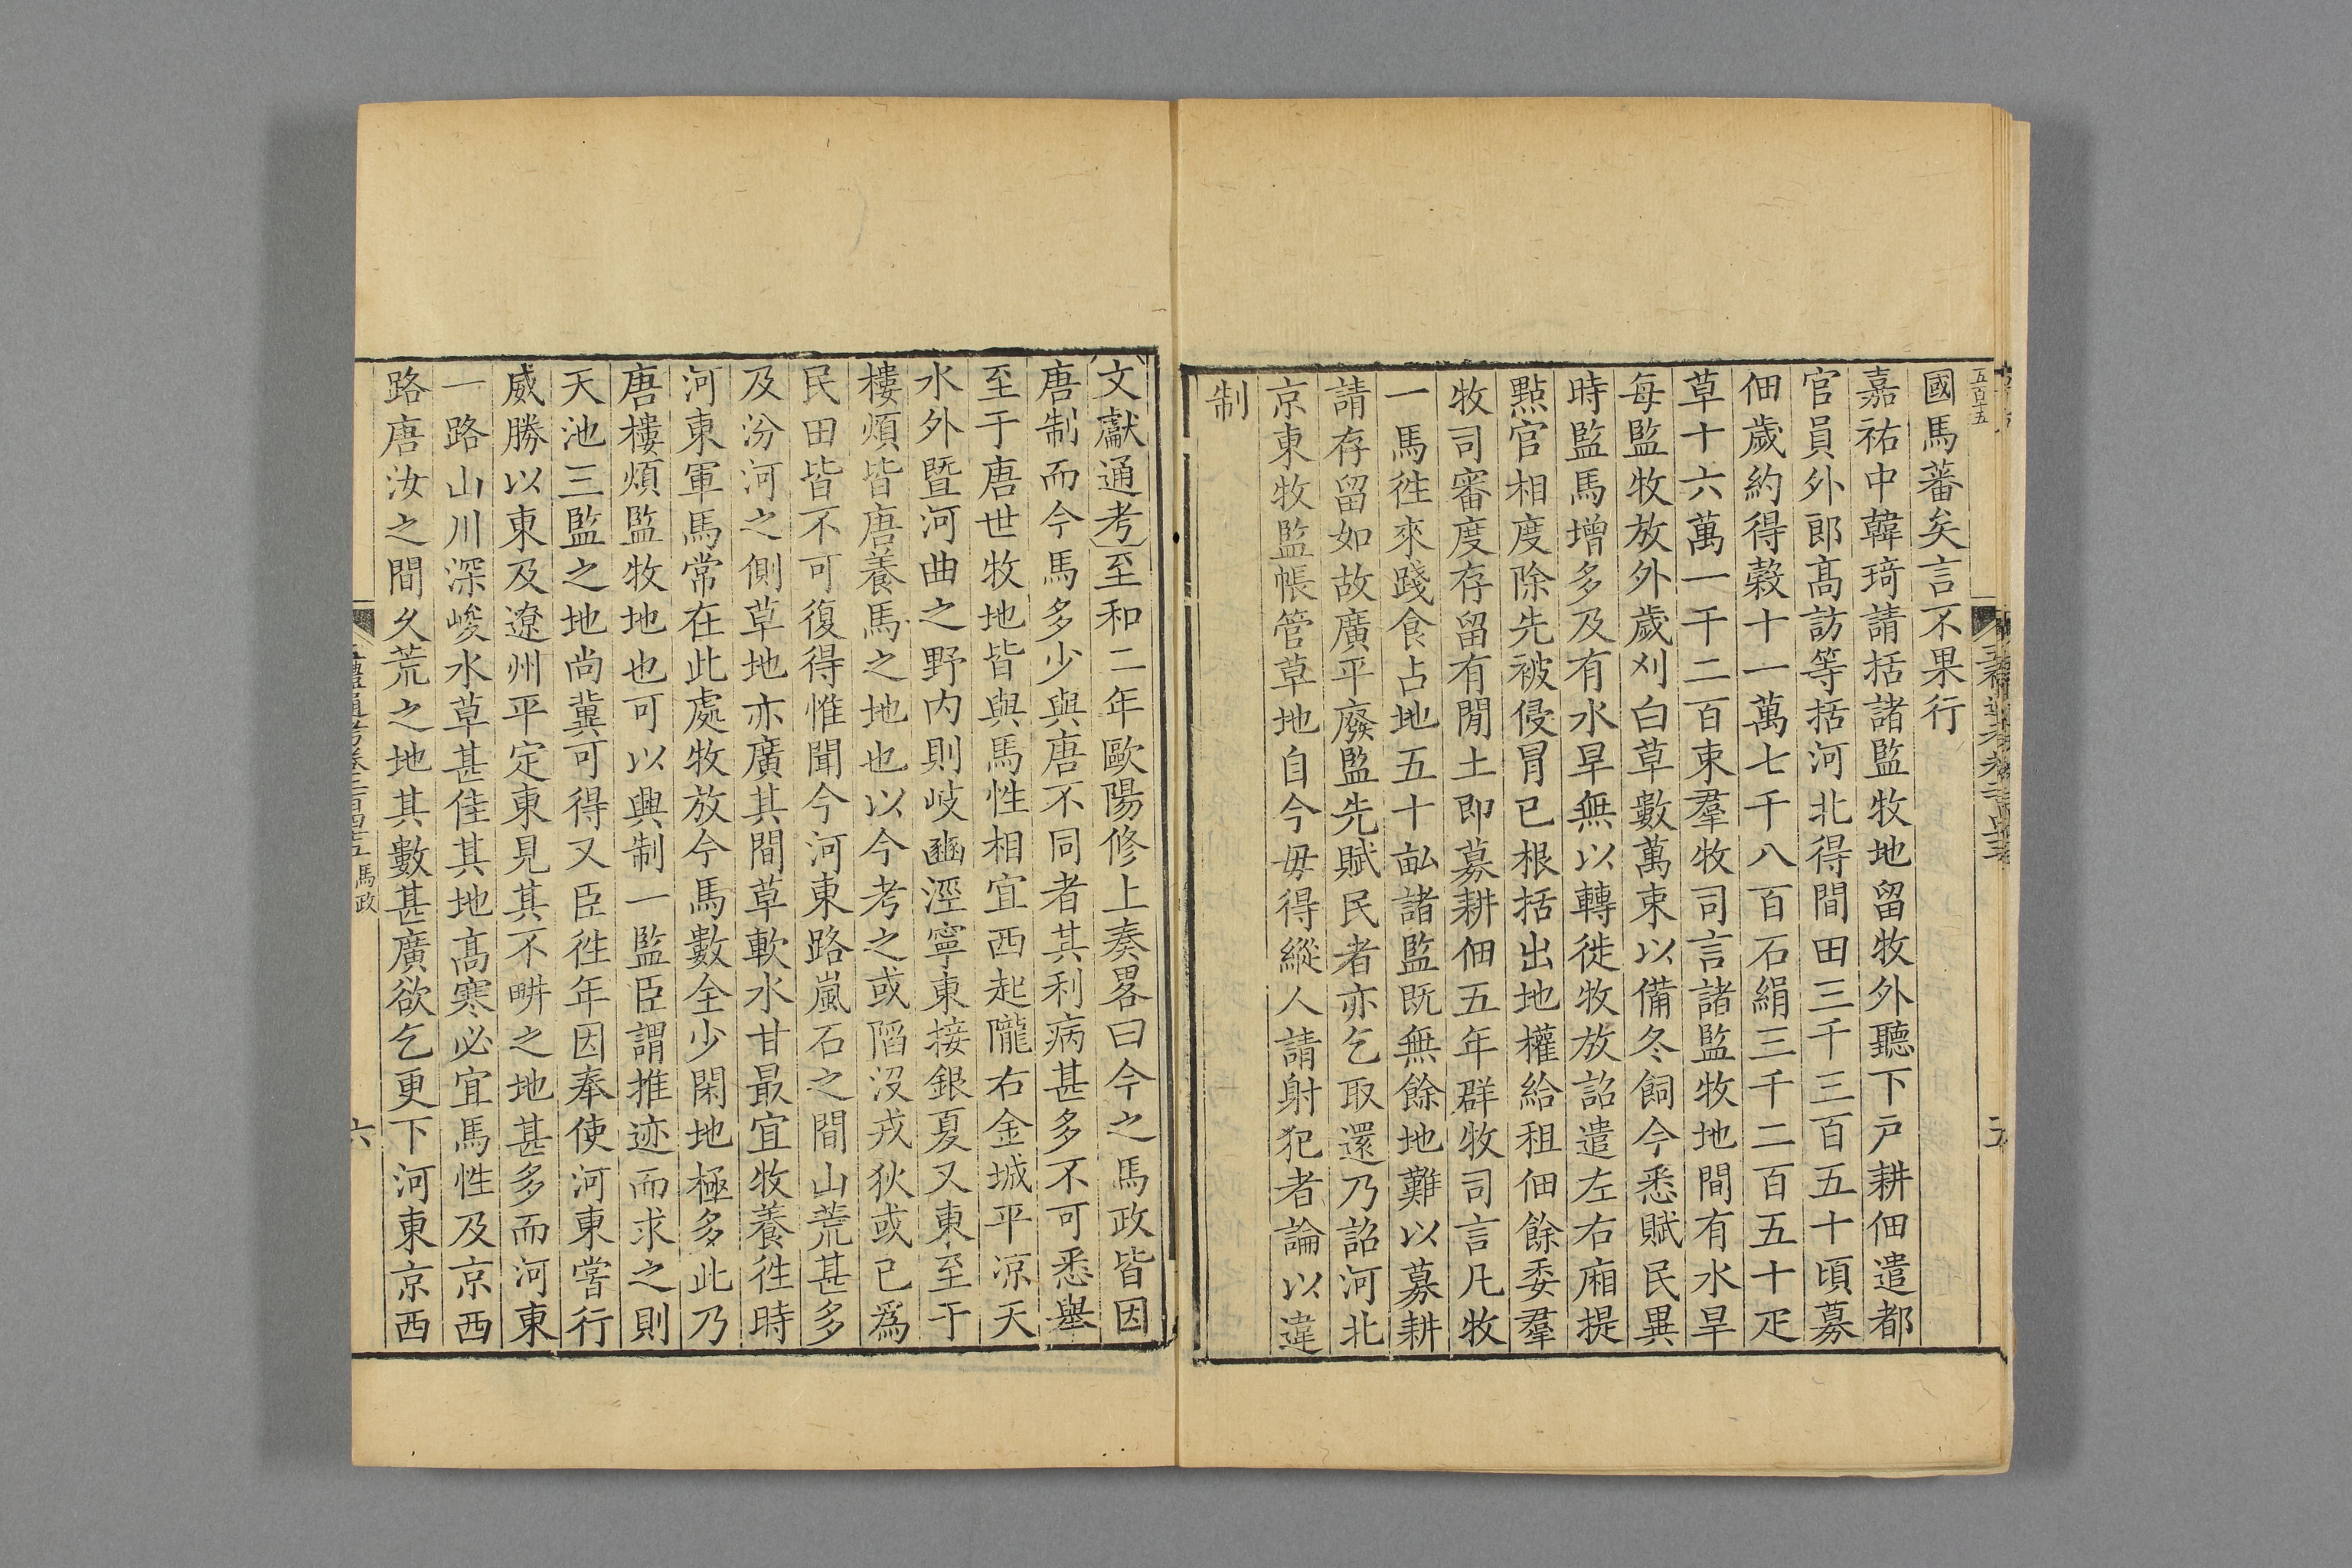 五百十五
國馬蕃矣言不果行
嘉祐中韓琦請括諸監牧地留牧外聽下戸耕佃遣都
官員外郎髙訪等括河北得閒田三千三百五十頃募
佃歲約得榖十一萬七千八百石絹三千二百五十疋
草十六萬一千二百束羣牧司言諸監牧地間有水旱
每監牧放外歲刈白草數萬束以備冬飼今悉賦民異
時監馬增多及有水旱無以轉徙牧放詔遣左右廂提
點官相度除先被侵冒已根括出地權給租佃餘委羣
牧司審度存留有閒土即募耕佃五年群牧司言凡牧
一馬徃來踐食占地五十畆諸監既無餘地難以募耕
請存留如故廣平廢監先賦民者亦乞取還乃詔河北
京東牧監帳管草地自今毋得縱人請射犯者論以違
制
文獻通考至和二年歐陽修上奏畧曰今之馬政皆因
唐制而今馬多少與唐不同者其利病甚多不可悉舉
至于唐世牧地皆與馬性相宜西起隴右金城平涼天
水外暨河曲之野内則岐豳涇寧東接銀夏又東至于
樓煩皆唐養馬之地也以今考之或䧟沒戎狄或已爲
民田皆不可復得惟聞今河東路嵐石之間山荒甚多
及汾河之側草地亦廣其間草軟水甘最宜牧養徃時
河東軍馬常在此處牧放今馬數全少閑地極多此乃
唐樓煩監牧地也可以興制一監臣謂推迹而求之則
天池三監之地尚冀可得又臣徃年因奉使河東嘗行
威勝以東及遼州平定東見其不畊之地甚多而河東
一路山川深峻水草甚佳其地髙寒必宜馬性及京西
路唐汝之間久荒之地其數甚廣欲乞更下河東京西
馬政
六